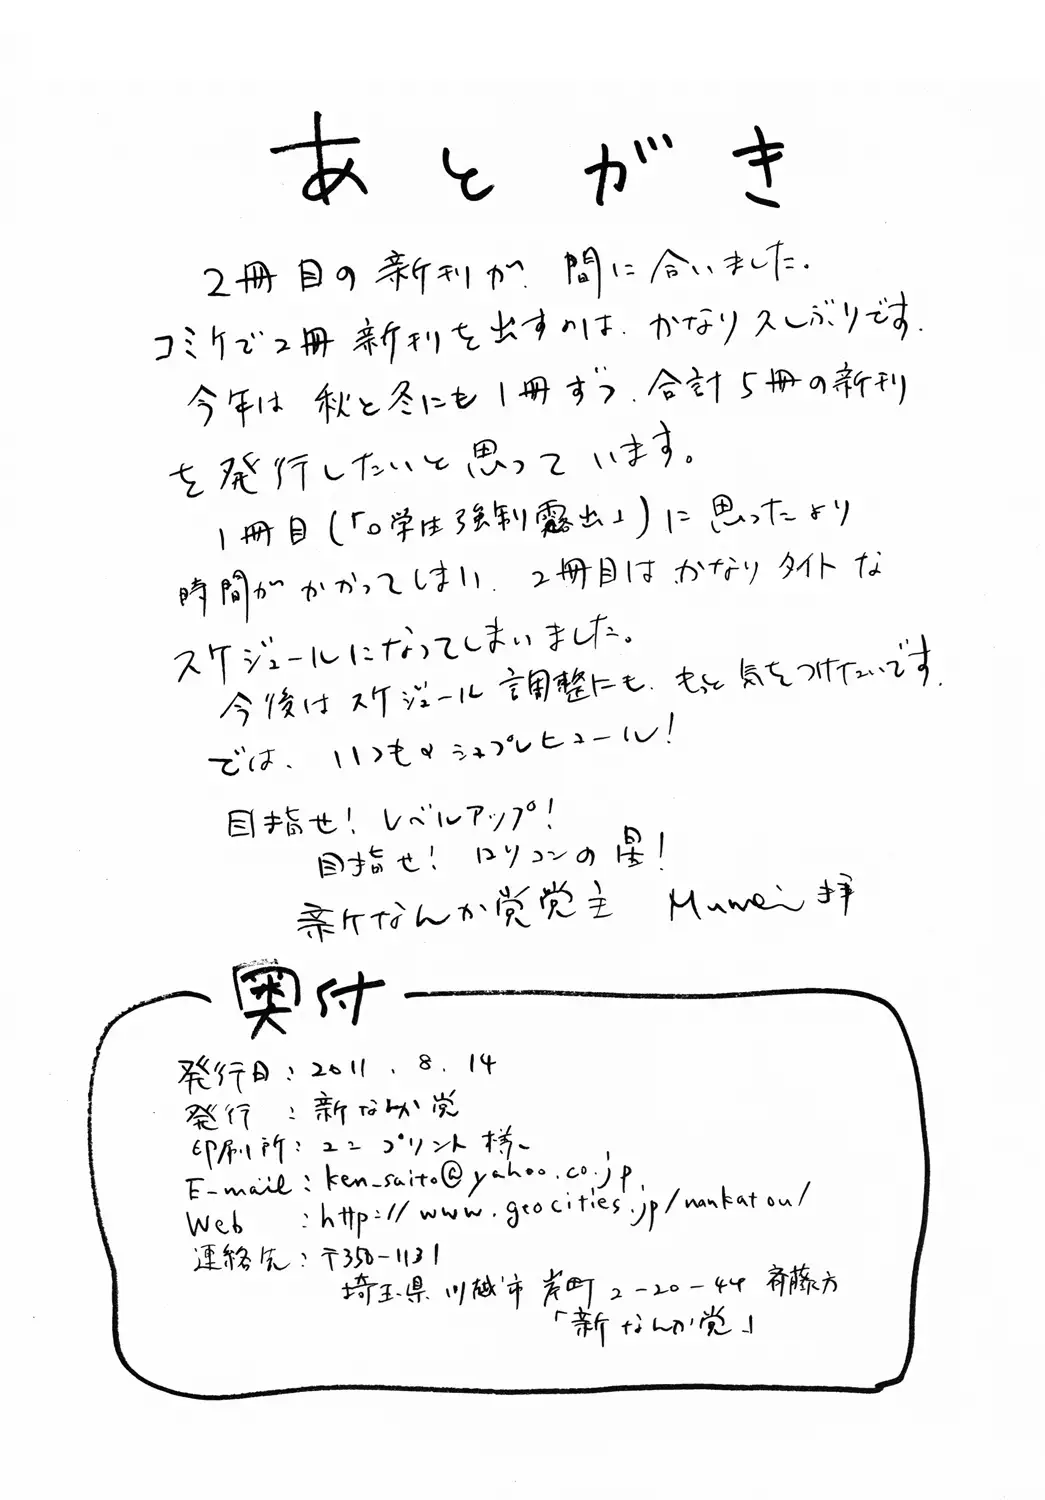 あとがき
2冊目の新刊が、間に合いました。
コミケで2冊新刊を出すのは、かなり久しぶりです。
今年は秋と冬にも1冊ずつ、合計5冊の新刊
を発行したいと思っています。
1冊目(「○学生強制露出」)に思ったより
時間がかかってしまい、2冊目はかなりタイトな
スケジュールになってしまいました。
今後はスケジュール調整にも、もっと気をつけたいです。
では、いつものシュプレヒコール!
目指せ!レベルアップ!
目指せ!ロリコンの星!
新なんか党党主 Mumei拝
奥付
発行日:2011.8.14
発行:新なんか党
印刷所:ユニプリント様
E-mail:ken_saito@yahoo.co.jp
Web:http://www.geocities.jp/nankatou/
連絡先:〒350-1131
埼玉県川越市岸町2-20-44 斉藤方
「新なんか党」